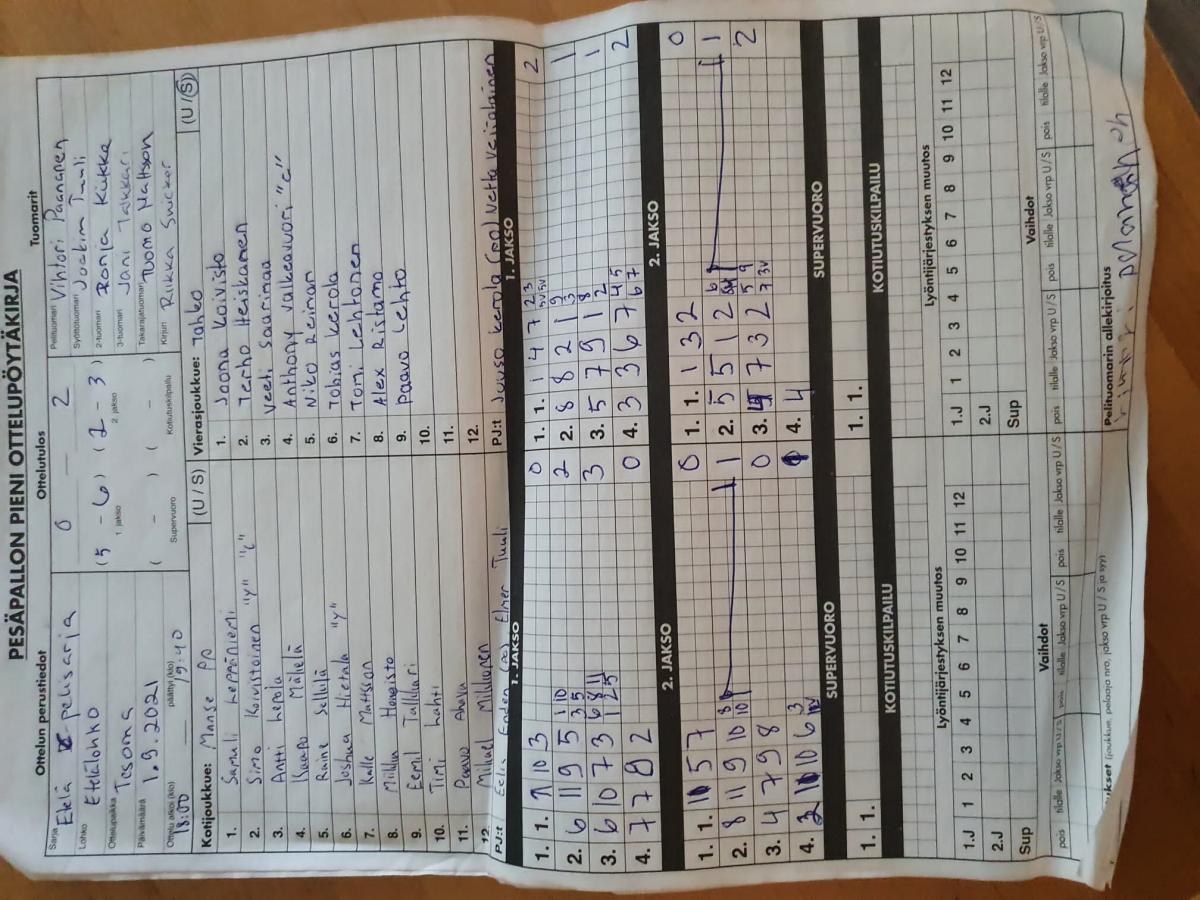 PESÄPALLON PIENI OTTELUPÖYTÄKIRJA
Ottelun perustiedot
Ottelutulos
Tuomarit
Sarja Etelä pelisarja
Lohko Etelälohko
Ottelupaikka Tesoma
Päivämäärä 1.9.2021
Ottelu alkoi (klo) 18:00 päättyi (klo) 19:40
0 — 2
(5 - 6) (2 - 3)
1 jakso 2 jakso
( - ) ( - )
Supervuoro Kotiutuskilpailu
Pelituomari Vihtori Paananen
Syöttötuomari Joakim Tuuli
2-tuomari Ronja Kukka
3-tuomari Jani Takkari
Takarajatuomari Tuomo Mattsson
Kirjuri Riikka Snicker
Kotijoukkue: Manse PP (U / S)
1. Samuli Leppäniemi
2. Simo Koivistoinen "y" "c"
3. Antti Lepola
4. Kaapo Mäkelä
5. Raine Sellilä
6. Joshua Hietala "y"
7. Kalle Mattsson
8. Miklu Hongisto
9. Eemil Takkari
10. Timi Lahti
11. Paavo Ahava
12. Mikael Mikkunen
PJ:t Elmer Tuuli
Vierasjoukkue: Tahko (U / S)
1. Joona Koivisto
2. Terho Heiskanen
3. Veeti Saarimaa
4. Anthony Valkeavuori "c"
5. Niko Reiman
6. Tobias Kerola
7. Tomi Lehtonen
8. Alex Ristamo
9. Paavo Lehto
10.
11.
12.
PJ:t Juuso Kerola Netta Vajjatainen
1. JAKSO
1. 1. 7 10 3 0
2. 6 11 9 5 1 10 3 5 2
3. 6 10 7 3 6 8 11 1 2 5 3
4. 7 7 8 2 0
1. JAKSO
1. 1. 1 4 7 2 3 5v 5v 2
2. 8 8 2 1 9 3 1
3. 5 7 9 1 8 2 1
4. 3 3 6 7 4 5 6 7 2
2. JAKSO
1. 1. 5 7 0
2. 8 11 9 10 8 10 1
3. 4 7 9 8 0
4. 10 6 3
2. JAKSO
1. 1. 1 3 2 0
2. 5 5 1 2 1
3. 7 3 2 5 9 7 3v 2
4. 4
SUPERVUORO
1. 1.
SUPERVUORO
1. 1.
KOTIUTUSKILPAILU
KOTIUTUSKILPAILU
Lyöntijärjestyksen muutos
1.J 1 2 3 4 5 6 7 8 9 10 11 12
2.J
Sup
Lyöntijärjestyksen muutos
1.J 1 2 3 4 5 6 7 8 9 10 11 12
2.J
Sup
Vaihdot
pois tilalle Jakso vrp U / S pois tilalle Jakso vrp U / S pois tilalle Jakso vrp U / S
Vaihdot
pois tilalle Jakso vrp U / S pois tilalle Jakso vrp U / S pois tilalle Jakso vrp U / S
(joukkue, pelaaja nro, jakso vrp U / S ja syy)
Pelituomarin allekirjoitus